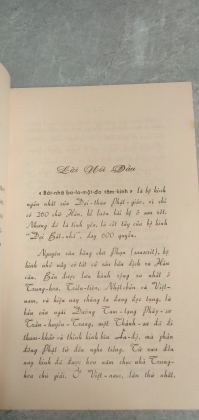 Lời Nói Đầu
« Bát-nhã ba-la-mật-đa tâm-kinh » là bộ kinh
ngắn nhất của Đại-thừa Phật-giáo, vì chỉ
có 260 chữ Hán, kể luôn bài kệ ở sau rốt.
Nhưng đó là tinh yếu, là cốt tủy của bộ kinh
"Đại Bát-nhã", dày 600 quyển.
Nguyên văn bằng chữ Phạn (sanscrit), bộ
kinh nhỏ này có tất cả sáu bản dịch ra Hán
văn. Bản được lưu hành rộng rãi nhất ở
Trung-hoa, Triều-tiên, Nhật-bản và Việt-
nam, và hiện nay chúng ta đang đọc tụng, là
bản của ngài Đường Tam-tạng Pháp-sư
Trần-huyền-Trang, một Thánh-sư đã đi
thỉnh kinh bên Ấn-độ, mà phần
đông Phật-tử đều nghe tiếng. Từ xưa đến
nay kinh đó được hơn năm chục nhà Trung-
hoa chú giải. Ở Việt-nam, lần thứ nhất,